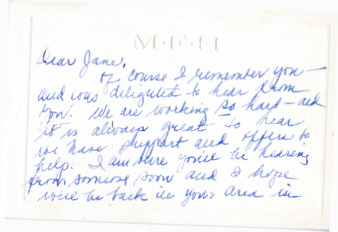 M·E·H
Dear Jane,
Of course I remember you—
and was delighted to hear from
you. We are working so hard—and
it is always great to hear
we have support and offers to
help. I am sure you'll be hearing
from someone soon and I hope
we'll be back in your area in